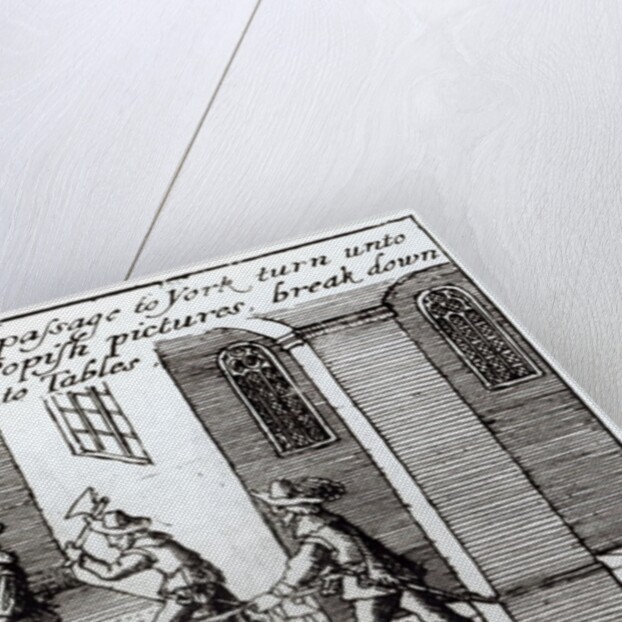 paſsage to York turn unto
opiſh pictures, break down
to Tables.